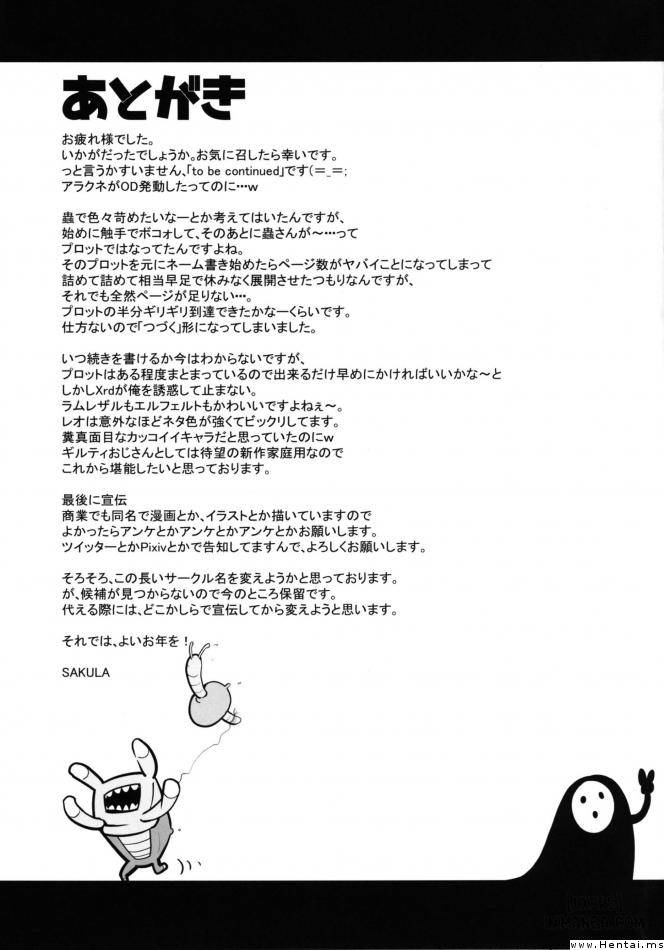 あとがき
お疲れ様でした。
いかがだったでしょうか。お気に召したら幸いです。
っと言うかすいません、「to be continued」です(＝_＝;
アラクネがOD発動したってのに…ｗ
蟲で色々苛めたいなーとか考えてはいたんですが、
始めに触手でボコォして、そのあとに蟲さんが～…って
プロットではなってたんですよね。
そのプロットを元にネーム書き始めたらページ数がヤバイことになってしまって
詰めて詰めて相当早足で休みなく展開させたつもりなんですが、
それでも全然ページが足りない…。
プロットの半分ギリギリ到達できたかなーくらいです。
仕方ないので「つづく」形になってしまいました。
いつ続きを書けるか今はわからないですが、
プロットはある程度まとまっているので出来るだけ早めにかければいいかな～と
しかしXrdが俺を誘惑して止まない。
ラムレザルもエルフェルトもかわいいですよねぇ～。
レオは意外なほどネタ色が強くてビックリしてます。
糞真面目なカッコイイキャラだと思っていたのにｗ
ギルティおじさんとしては待望の新作家庭用なので
これから堪能したいと思っております。
最後に宣伝
商業でも同名で漫画とか、イラストとか描いていますので
よかったらアンケとかアンケとかアンケとかお願いします。
ツイッターとかPixivとかで告知してますんで、よろしくお願いします。
そろそろ、この長いサークル名を変えようかと思っております。
が、候補が見つからないので今のところ保留です。
代える際には、どこかしらで宣伝してから変えようと思います。
それでは、よいお年を！
SAKULA
www.Hentai.ms